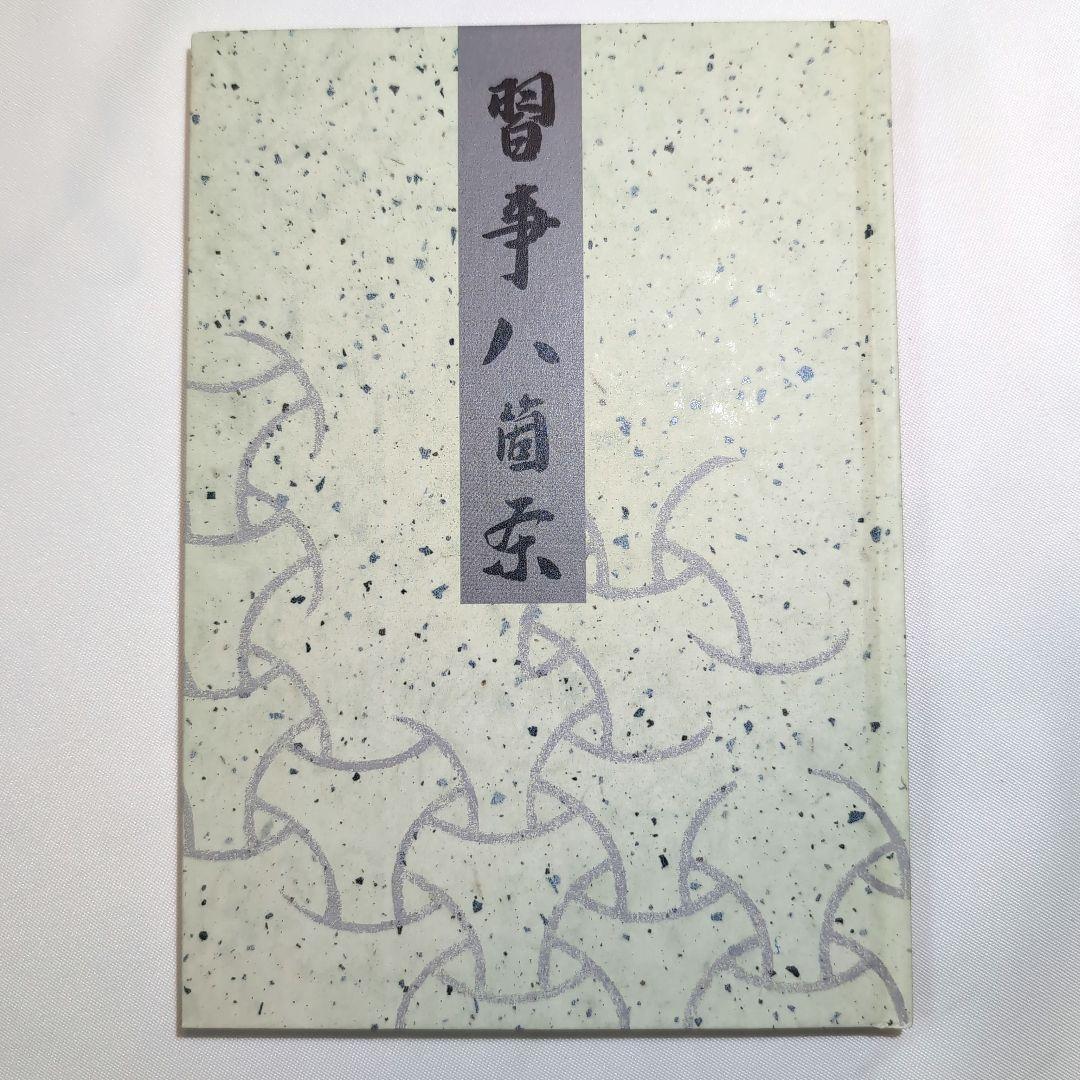 習事八箇条